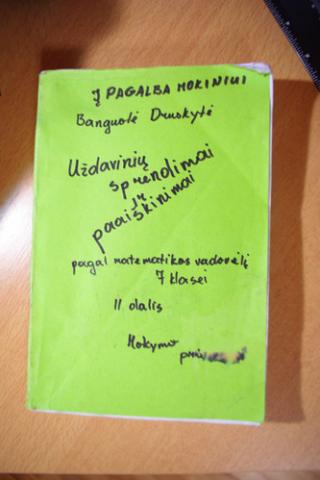 Į PAGALBA MOKINIUI
Banguolė Druskytė
Uždavinių
sprendimai
ir
paaiškinimai
pagal matematikos vadovėlį
7 klasei
II dalis
Mokymo